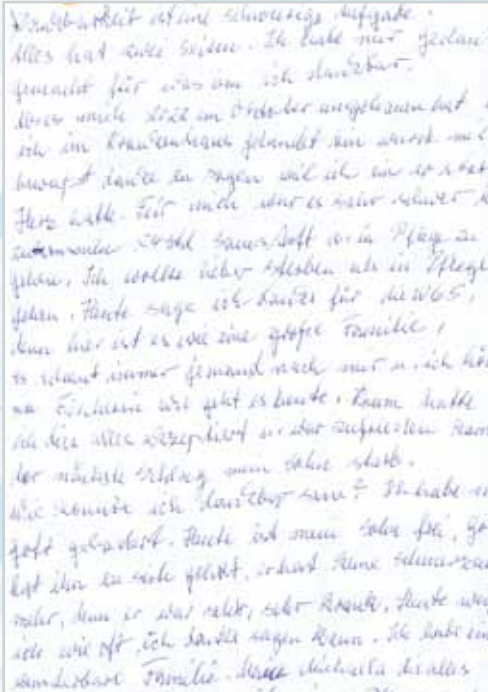 Dankbarkeit ist eine schwierige Aufgabe.
Alles hat zwei Seiten. Ich habe mir Gedan
gemacht für was bin ich dankbar.
mich 2022 im Oktober umgehauen hat
ich im Krankenhaus gelandet bin wurde mir
bewußt danke zu sagen weil ich ein so star
Herz hatte. Für mich war es sehr schwer
Sauerstoff in Pflege zu
gehen. Ich wollte lieber sterben als in Pflege
gehen. Heute sage ich danke für die WG5,
denn hier ist es wie eine große Familie,
es schaut immer jemand nach mir u. ich hö
wie geht es heute. Kaum hatte
ich dies alles akzeptiert u. war zufrieden kam
der nächste Schlag mein Sohn starb.
Wie konnte ich dankbar sein? Ich habe m
Gott gehadert. Heute ist mein Sohn frei, Go
hat ihn zu sich geholt, er hat keine Schmerzen
mehr, denn er war sehr, sehr krank. Heute wei
ich wie oft ich danke sagen kann. Ich habe ein
wunderbare Familie. Michaela die alles